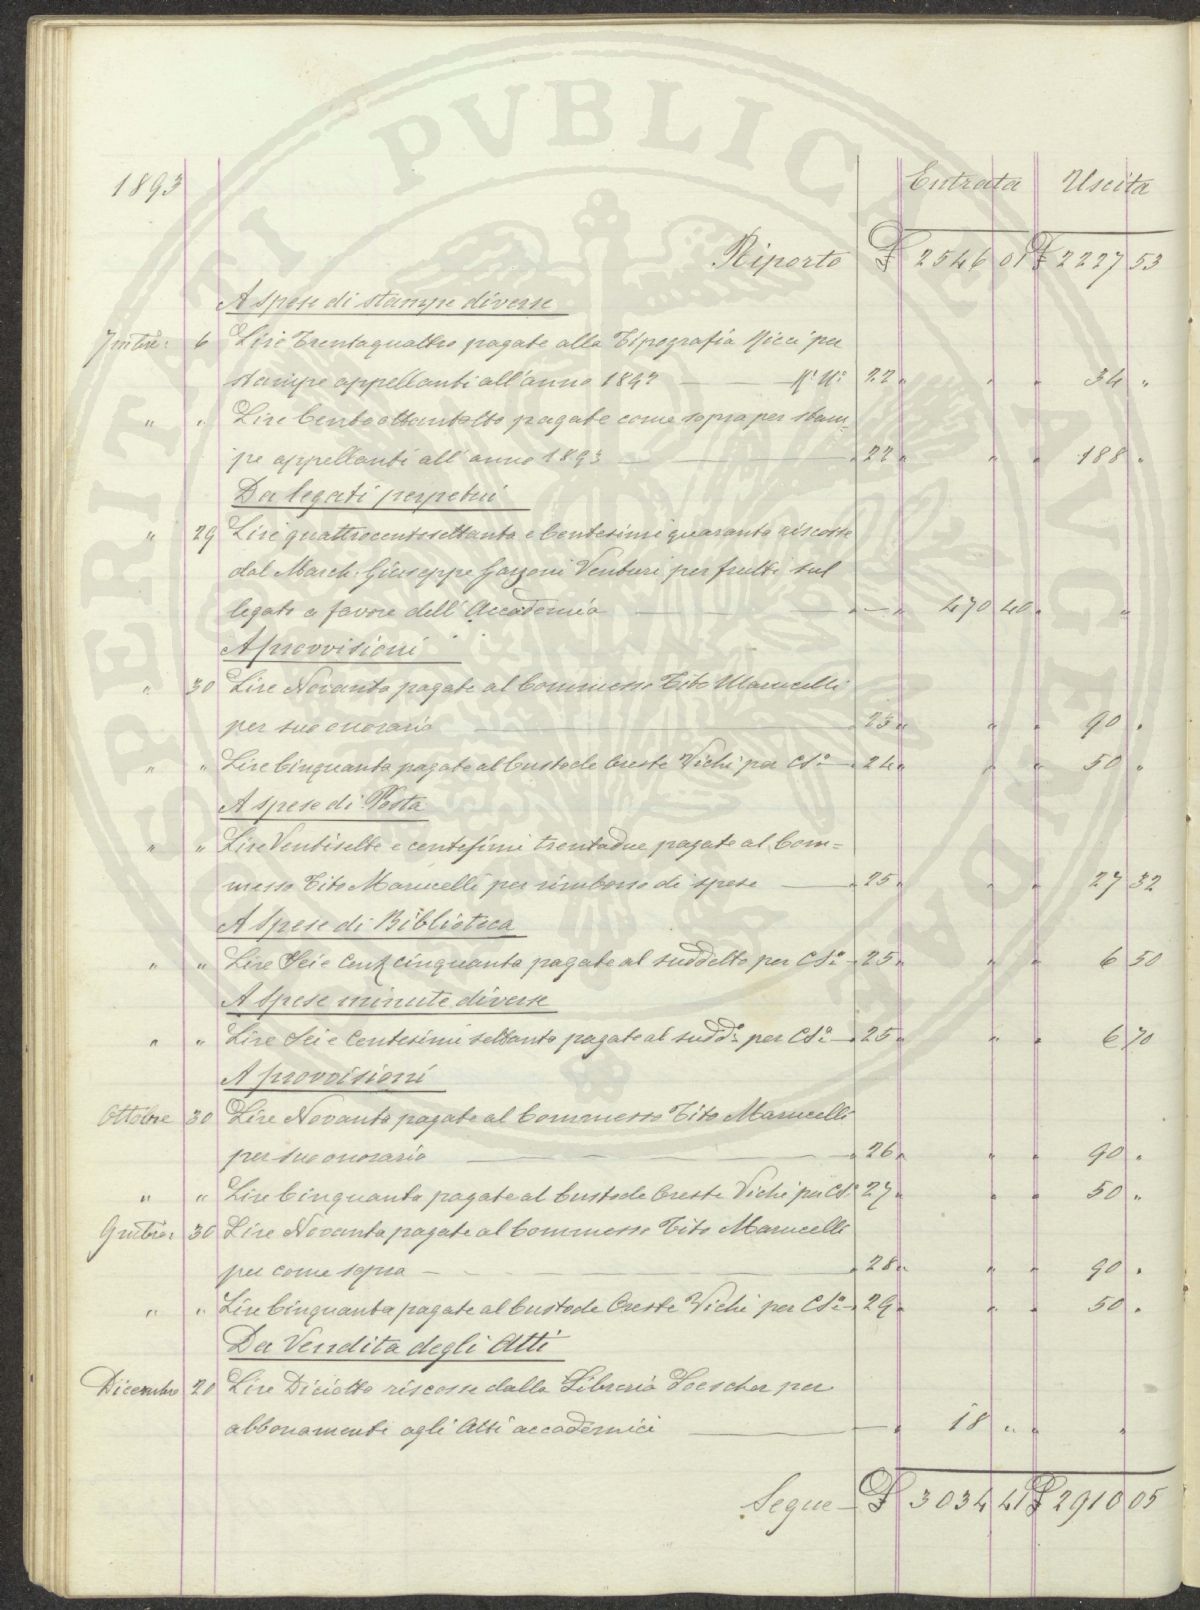 1893 Entrata Uscita
Riporto £ 2546 01 £ 2227 53
A spese di stampe diverse
7mbre: 6 Lire Trentaquattro pagate alla Tipografia Ricci per
stampe appellanti all'anno 1892 — N.i U.i 22 " " " 34 "
" " Lire Centoottantotto pagate come sopra per stam-
pe appellanti all'anno 1893 — " 22 " " " 188 "
Da legati perpetui
" 29 Lire quattrocentosettanta e Centesimi quaranta riscosse
dal March: Giuseppe Garzoni Venturi per frutti sul
legato a favore dell'Accademia — " — " 470 40 " "
A provvisioni
" 30 Lire Novanta pagate al Commesso Tito Marucelli
per suo onorario — " 23 " " " 90 "
" " Lire Cinquanta pagate al Custode Oreste Vichi per Cs.a — " 24 " " " 50 "
A spese di Posta
" " Lire Ventisette e centesimi trentadue pagate al Com=
messo Tito Marucelli per rimborso di spese — " 25 " " " 27 32
A Spese di Biblioteca
" " Lire Sei e Cent cinquanta pagate al suddetto per Cs.a " 25 " " " 6 50
A Spese minute diverse
" " Lire Sei e Centesimi settanta pagate al sudd.o per Cs.a — " 25 " " " 6 70
A provvisioni
Ottobre 30 Lire Novanta pagate al Commesso Tito Marucelli
per suo onorario — " 26 " " " 90 "
" " Lire Cinquanta pagate al Custode Oreste Vichi per Cs.a 27 " " " 50 "
9mbre: 30 Lire Novanta pagate al Commesso Tito Marucelli
per come sopra — " 28 " " " 90 "
" " Lire Cinquanta pagate al Custode Oreste Vichi per Cs.a " 29 " " " 50 "
Da Vendita degli Atti
Dicembre 20 Lire Diciotto riscosse dalla Libreria Loescher per
abbonamenti agli Atti accademici — " 18 " " "
Segue — £ 3034 41 £ 2910 05
PROSPERITATI PVBLICAE AVGENDAE